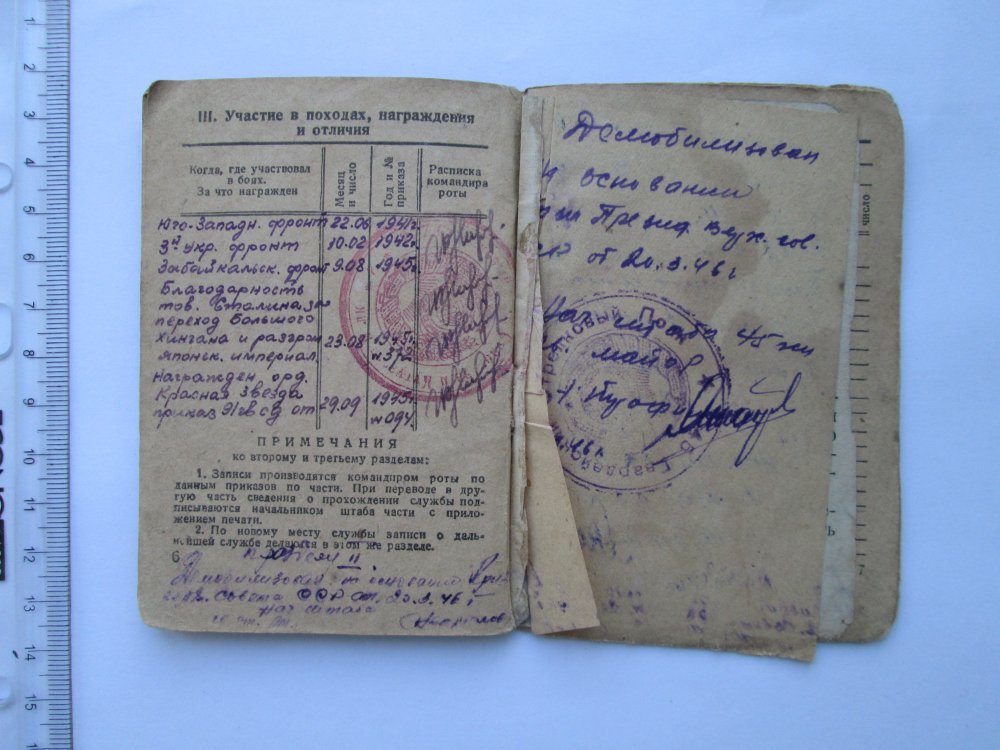 III. Участие в походах, награждения
и отличия
Когда, где участвовал
в боях.
За что награжден
Месяц
и число
Год и №
приказа
Расписка
командира
роты
Юго-Западн. фронт 22.06 1941г.
3й Укр. фронт 10.02 1942г.
Забайкальск. фронт 9.08 1945г.
Благодарность
тов. Сталина за
переход Большого
Хингана и разгром 23.08 1945г.
Японск. империал. №372
Награжден. орд.
Красная Звезда 29.09 1945г.
приказ 91гвсд от №094
ПРИМЕЧАНИЯ
ко второму и третьему разделам:
1. Записи производятся командиром роты по
данным приказов по части. При переводе в дру-
гую часть сведения о прохождении службы под-
писываются начальником штаба части с прило-
жением печати.
2. По новому месту службы записи о даль-
нейшей службе делаются в этом же разделе.
6
Демобилизован на основании
Совета СССР от 20.3.46 г
Нач штаба
Демобилизован
основании
Презид. верх. сов.
от 20.3.46 г
майор
46 г.
и число
1
2
3
4
5
6
7
8
9
10
11
12
13
14
15